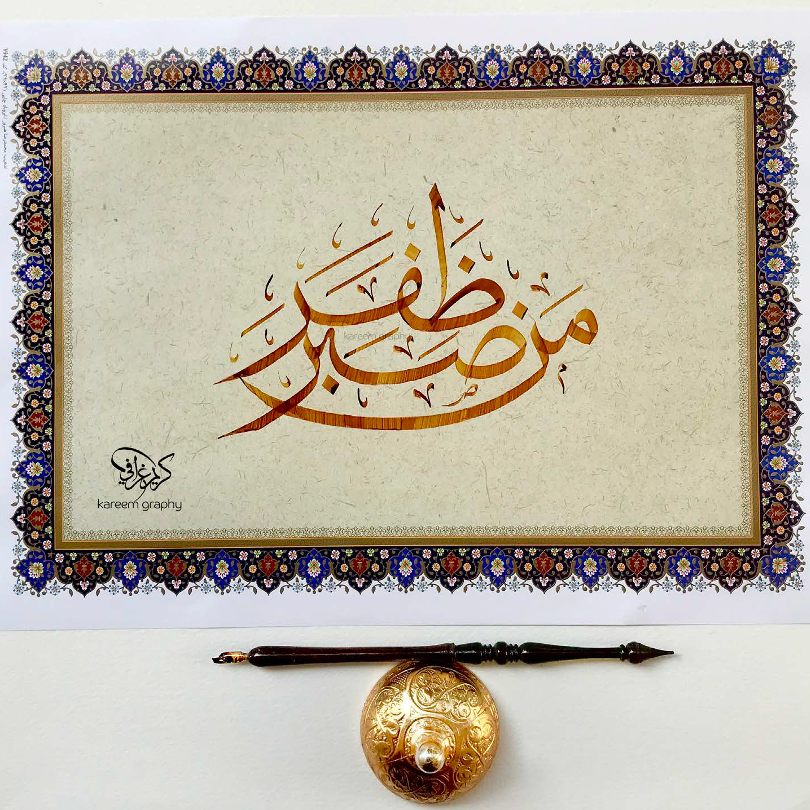 من صبر ظفر
kareem graphy
كريم غرافي
kareem graphy